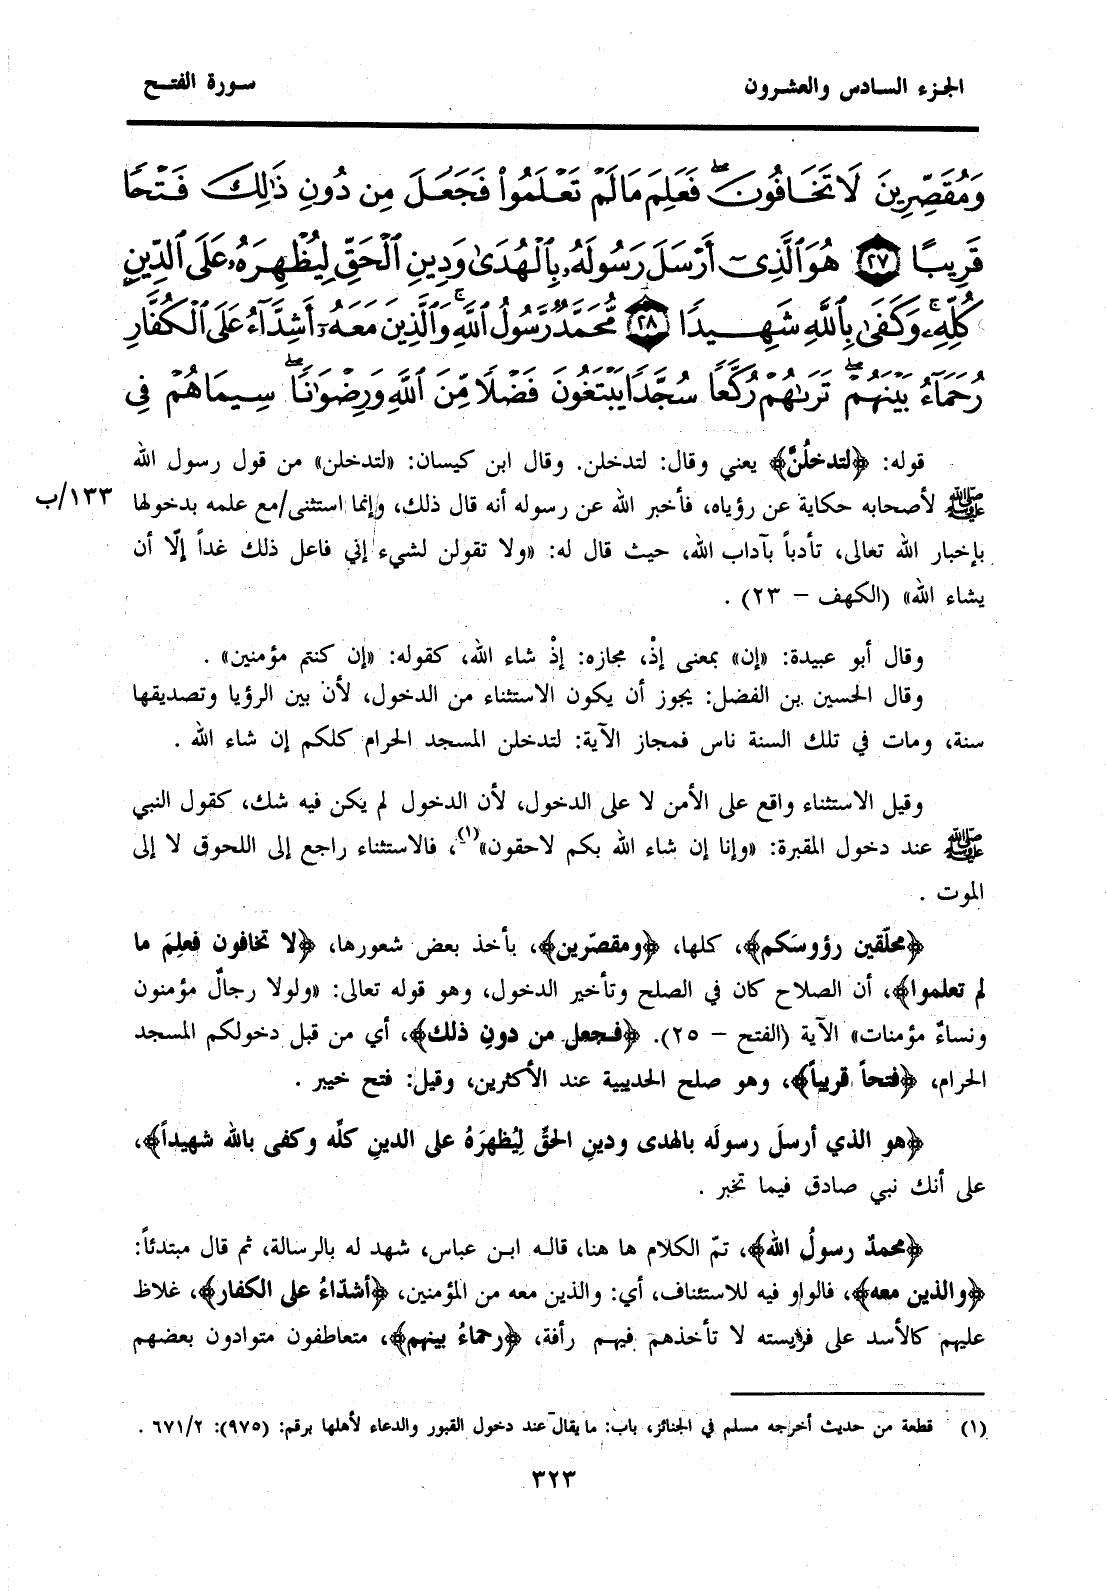 الجزء السادس والعشرون
سورة الفتح
وَمُقَصِّرِينَ لَا تَخَافُونَ ۖ فَعَلِمَ مَا لَمْ تَعْلَمُوا۟ فَجَعَلَ مِن دُونِ ذَٰلِكَ فَتْحًا
قَرِيبًا ٢٧ هُوَ ٱلَّذِىٓ أَرْسَلَ رَسُولَهُۥ بِٱلْهُدَىٰ وَدِينِ ٱلْحَقِّ لِيُظْهِرَهُۥ عَلَى ٱلدِّينِ
كُلِّهِۦ ۚ وَكَفَىٰ بِٱللَّهِ شَهِيدًا ٢٨ مُّحَمَّدٌ رَّسُولُ ٱللَّهِ ۚ وَٱلَّذِينَ مَعَهُۥٓ أَشِدَّآءُ عَلَى ٱلْكُفَّارِ
رُحَمَآءُ بَيْنَهُمْ ۖ تَرَىٰهُمْ رُكَّعًا سُجَّدًا يَبْتَغُونَ فَضْلًا مِّنَ ٱللَّهِ وَرِضْوَٰنًا ۖ سِيمَاهُمْ فِى
قوله: ﴿لتدخلُنَّ﴾ يعني وقال: لتدخلن. وقال ابن كيسان: «لتدخلن» من قول رسول الله
ﷺ لأصحابه حكاية عن رؤياه، فأخبر الله عن رسوله أنه قال ذلك، وإنما استثنى/مع علمه بدخولها
١٣٣/ب
بإخبار الله تعالى، تأدباً بآداب الله، حيث قال له: «ولا تقولن لشيء إني فاعل ذلك غداً إلّا أن
يشاء الله» (الكهف – ٢٣) .
وقال أبو عبيدة: «إن» بمعنى إذْ، مجازه: إذْ شاء الله، كقوله: «إن كنتم مؤمنين» .
وقال الحسين بن الفضل: يجوز أن يكون الاستثناء من الدخول، لأن بين الرؤيا وتصديقها
سنة، ومات في تلك السنة ناس فمجاز الآية: لتدخلن المسجد الحرام كلكم إن شاء الله .
وقيل الاستثناء واقع على الأمن لا على الدخول، لأن الدخول لم يكن فيه شك، كقول النبي
ﷺ عند دخول المقبرة: «وإنا إن شاء الله بكم لاحقون»(١)، فالاستثناء راجع إلى اللحوق لا إلى
الموت .
﴿محلّقين رؤوسَكم﴾، كلها، ﴿ومقصّرين﴾، بأخذ بعض شعورها، ﴿لا تخافون فعلِمَ ما
لم تعلموا﴾، أن الصلاح كان في الصلح وتأخير الدخول، وهو قوله تعالى: «ولولا رجالٌ مؤمنون
ونساءٌ مؤمنات» الآية (الفتح – ٢٥). ﴿فجعل من دونِ ذلك﴾، أي من قبل دخولكم المسجد
الحرام، ﴿فتحاً قريباً﴾، وهو صلح الحديبية عند الأكثرين، وقيل: فتح خيبر .
﴿هو الذي أرسلَ رسولَه بالهدى ودينِ الحقِّ لِيُظهرَهُ على الدينِ كلّه وكفى بالله شهيداً﴾،
على أنك نبي صادق فيما تخبر .
﴿محمدٌ رسولُ الله﴾، تمّ الكلام ها هنا، قاله ابن عباس، شهد له بالرسالة، ثم قال مبتدئاً:
﴿والذين معه﴾، فالواو فيه للاستئناف، أي: والذين معه من المؤمنين، ﴿أشدّاءُ على الكفار﴾، غلاظ
عليهم كالأسد على فريسته لا تأخذهم فيهم رأفة، ﴿رحماءُ بينهم﴾، متعاطفون متوادون بعضهم
(١) قطعة من حديث أخرجه مسلم في الجنائز، باب: ما يقال عند دخول القبور والدعاء لأهلها برقم: (٩٧٥): ٦٧١/٢ .
٣٢٣